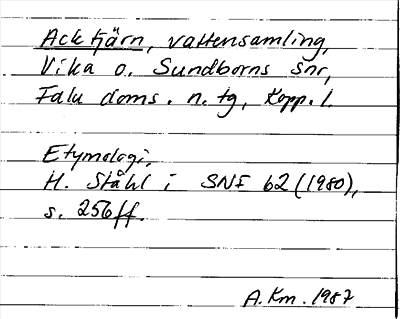 Acktjärn, vattensamling,
Vika o. Sundborns snr,
Falu doms. n. tg, Kopp. l.
Etymologi,
H. Ståhl i SNF 62 (1980),
s. 256 ff.
A. Km. 1987